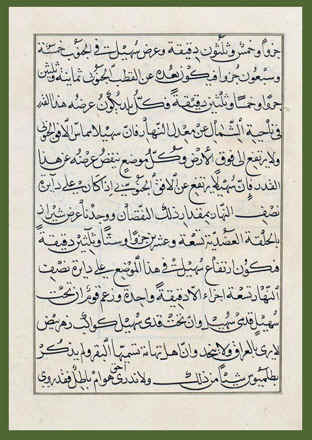 جزوا وخمس وثلثون دقيقة وعرض سهيل في الجنوب خمسة
وسبعون جزوا فيكون بعده عن القطب الجنوبي ثمانية وثلثين
جزوا وخمسا وثلثين دقيقة وكل بلد يكون عرضه هذا القدر
في ناحية الشمال عن معدل النهار فان سهيلا يماس الافق الجنوبي
ولا يرتفع الى فوق الارض وكل موضع ينقص عرضه عن هذا
القدر فان سهيلا يرتفع عن الافق الجنوبي اذا كان على دايرة
نصف النهار بمقدار ذلك النقصان ووجدنا عرض شيراز
بالحلقة العضدية تسعة وعشرين جزوا وستا وثلثين دقيقة
فيكون ارتفاع سهيل في هذا الموضع على دايرة نصف
النهار تسعة اجزاء الا دقيقة واحدة وزعم قوم ان تحت
سهيل قدمي سهيل وان تحت قدمي سهيل كواكب زهر بيض
لا ترى بالعراق ولا بنجد وان اهل تهامة تسميها البقر ولم يذكر
بطلميوس شيئا من ذلك ولا ندري احق هو ام باطل فقد روي